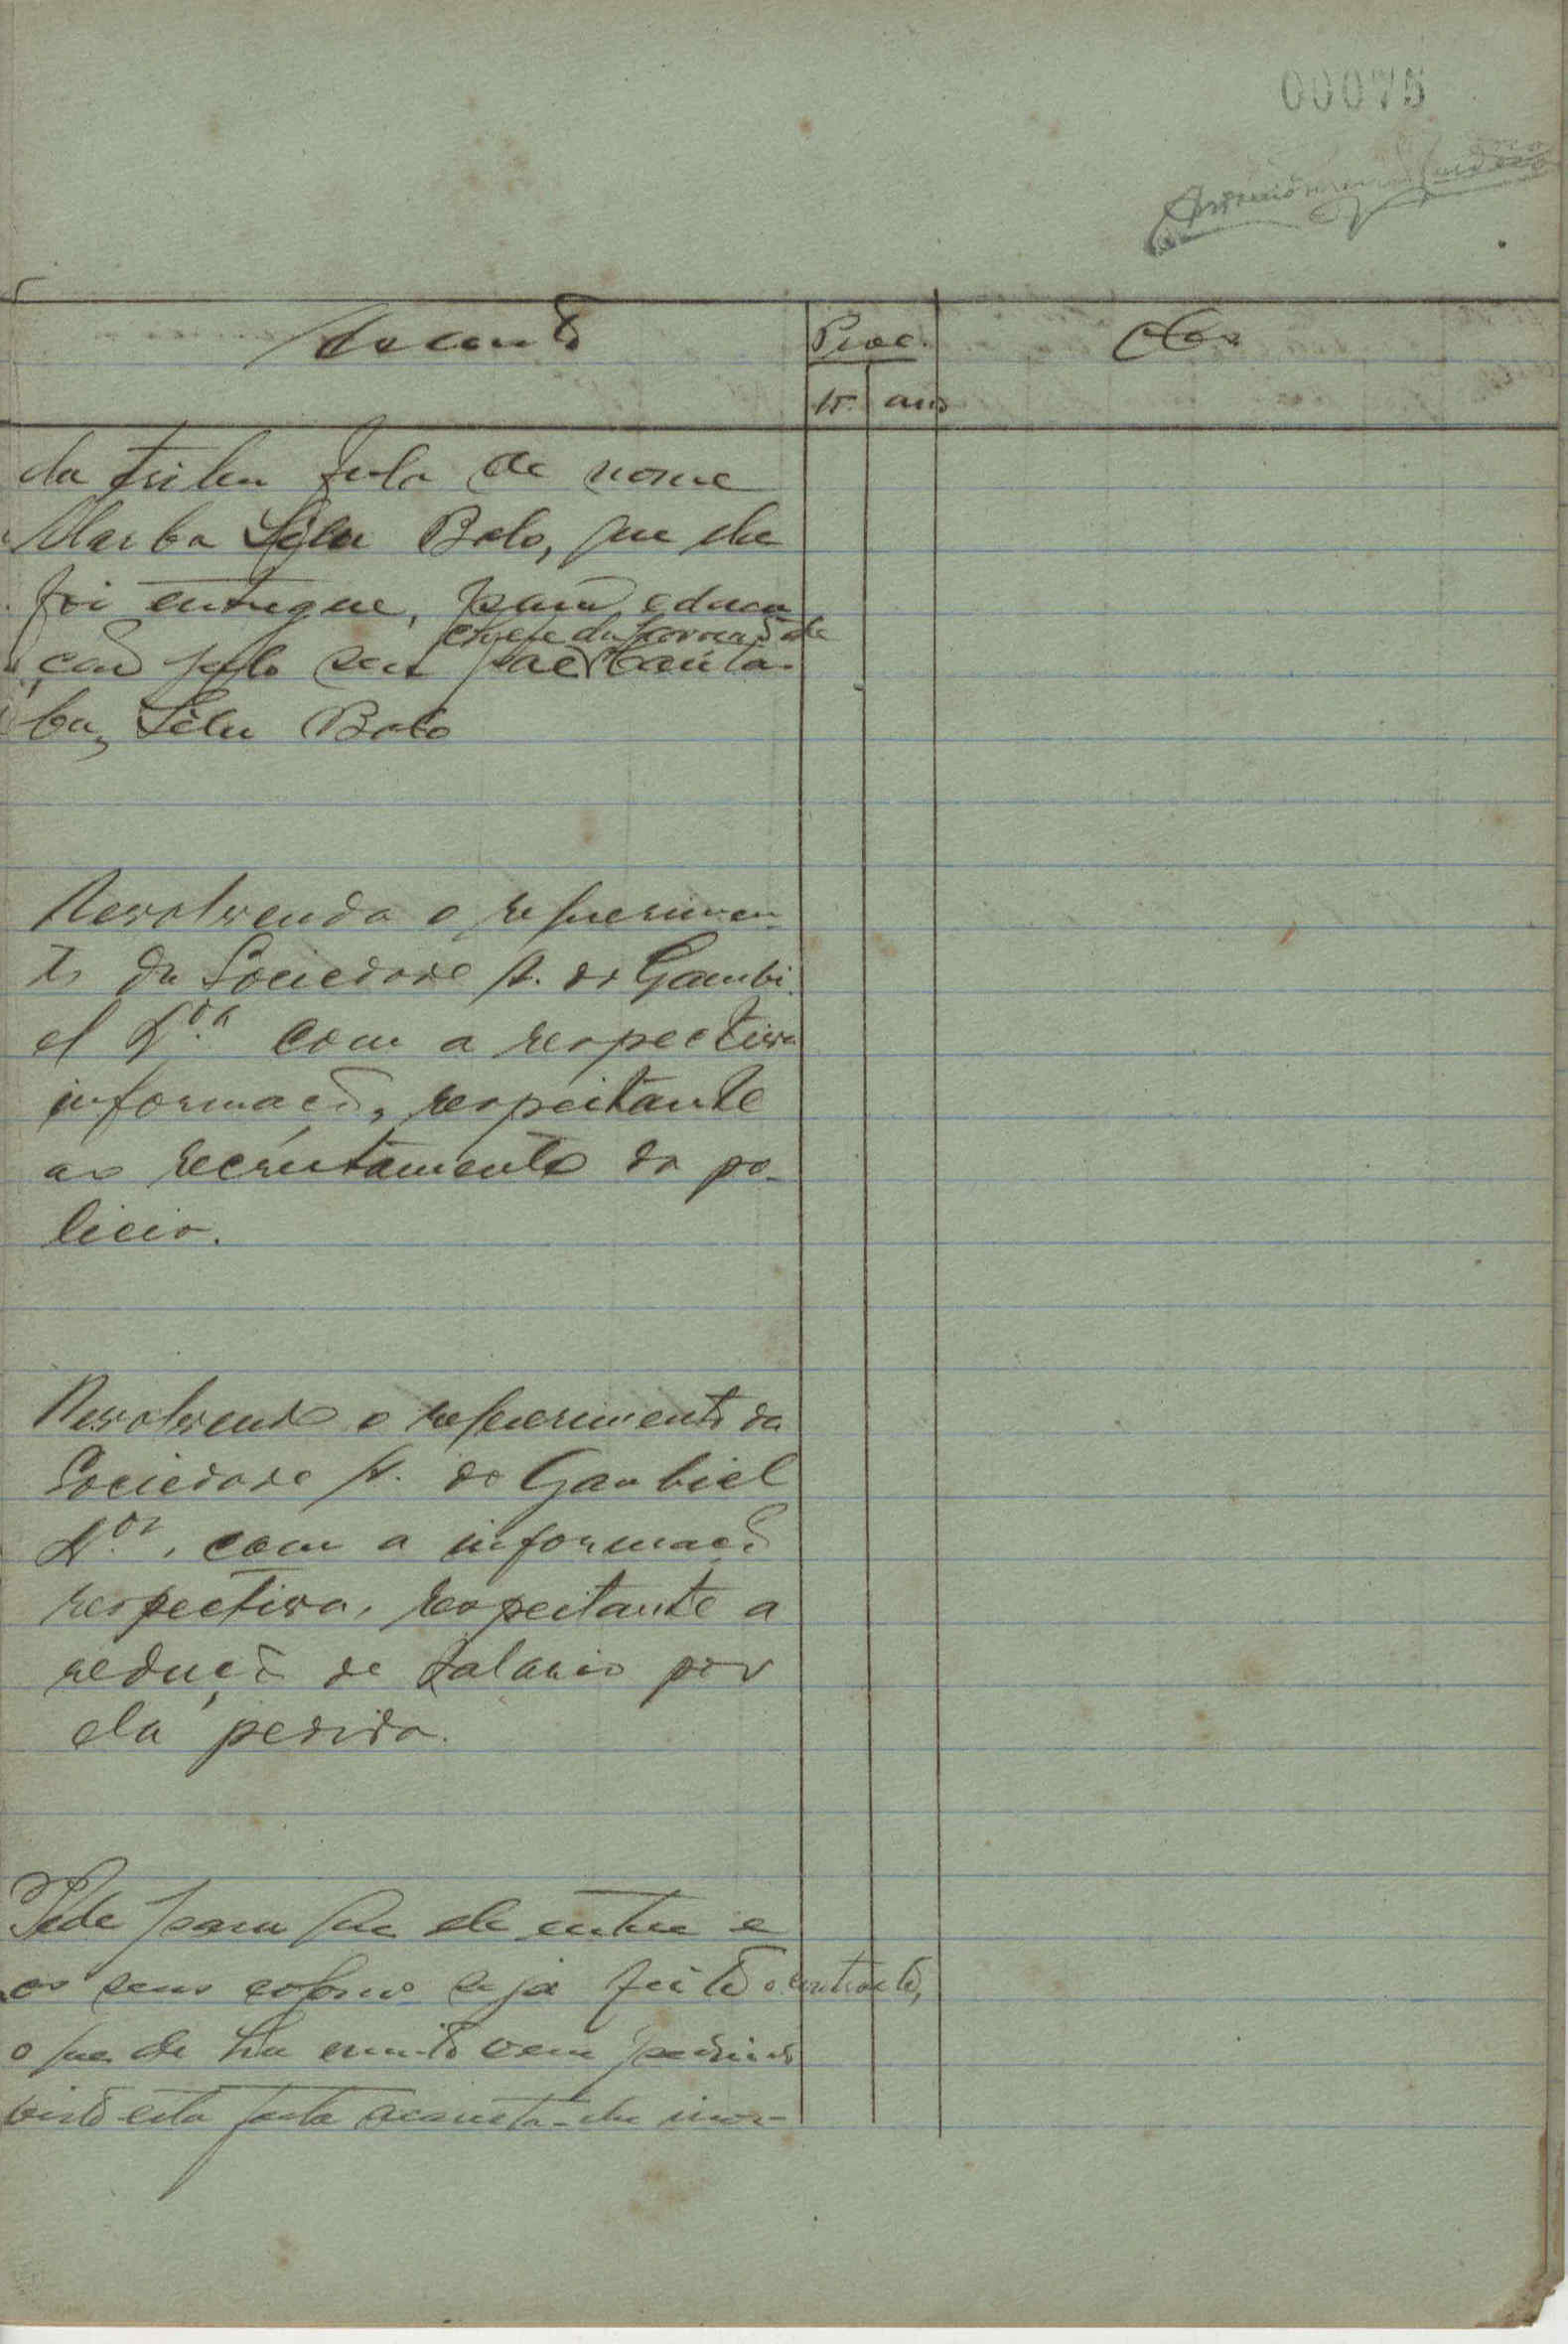 00075
Assunto
Proc.
Obs
Nº
ano
da tribu fula de nome
Marba Sélu Bolo, que lhe
foi entregue, para educa
chefe da povoação de
ção pelo seu pae
ba, Sélu Bolo
Devolvendo o requerimen-
to da Sociedade A. do Gambi
el Lda com a respectiva
informação, respeitante
ao recrutamento da po-
licia.
Devolvendo o requerimento da
Sociedade A. do Gambiel
Lda, com a informação
respectiva, respeitante a
redução de salario por
ela pedida.
Pede para que ele entre e
os seus seja feito o contracto,
o que de ha muito vem pedindo
visto esta falta acarreta-lhe